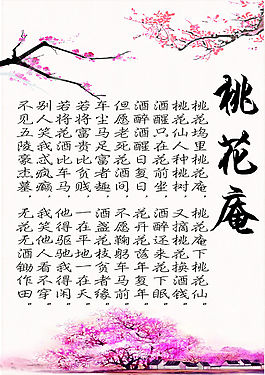 桃花庵
桃花坞里桃花庵，
桃花庵下桃花仙。
桃花仙人种桃树，
又摘桃花换酒钱。
酒醒只在花前坐，
酒醉还来花下眠。
日复日，
花开花落年复年。
但愿老死花酒间，
不愿鞠躬车马前。
车尘马足富者趣，
酒盏花枝贫者缘。
若将富贵比贫贱，
一在平地一在天。
若将花酒比车马，
他得驱驰我得闲。
别人笑我忒疯癫，
我笑他人看不穿。
不见五陵豪杰墓，
无花无酒锄作田。